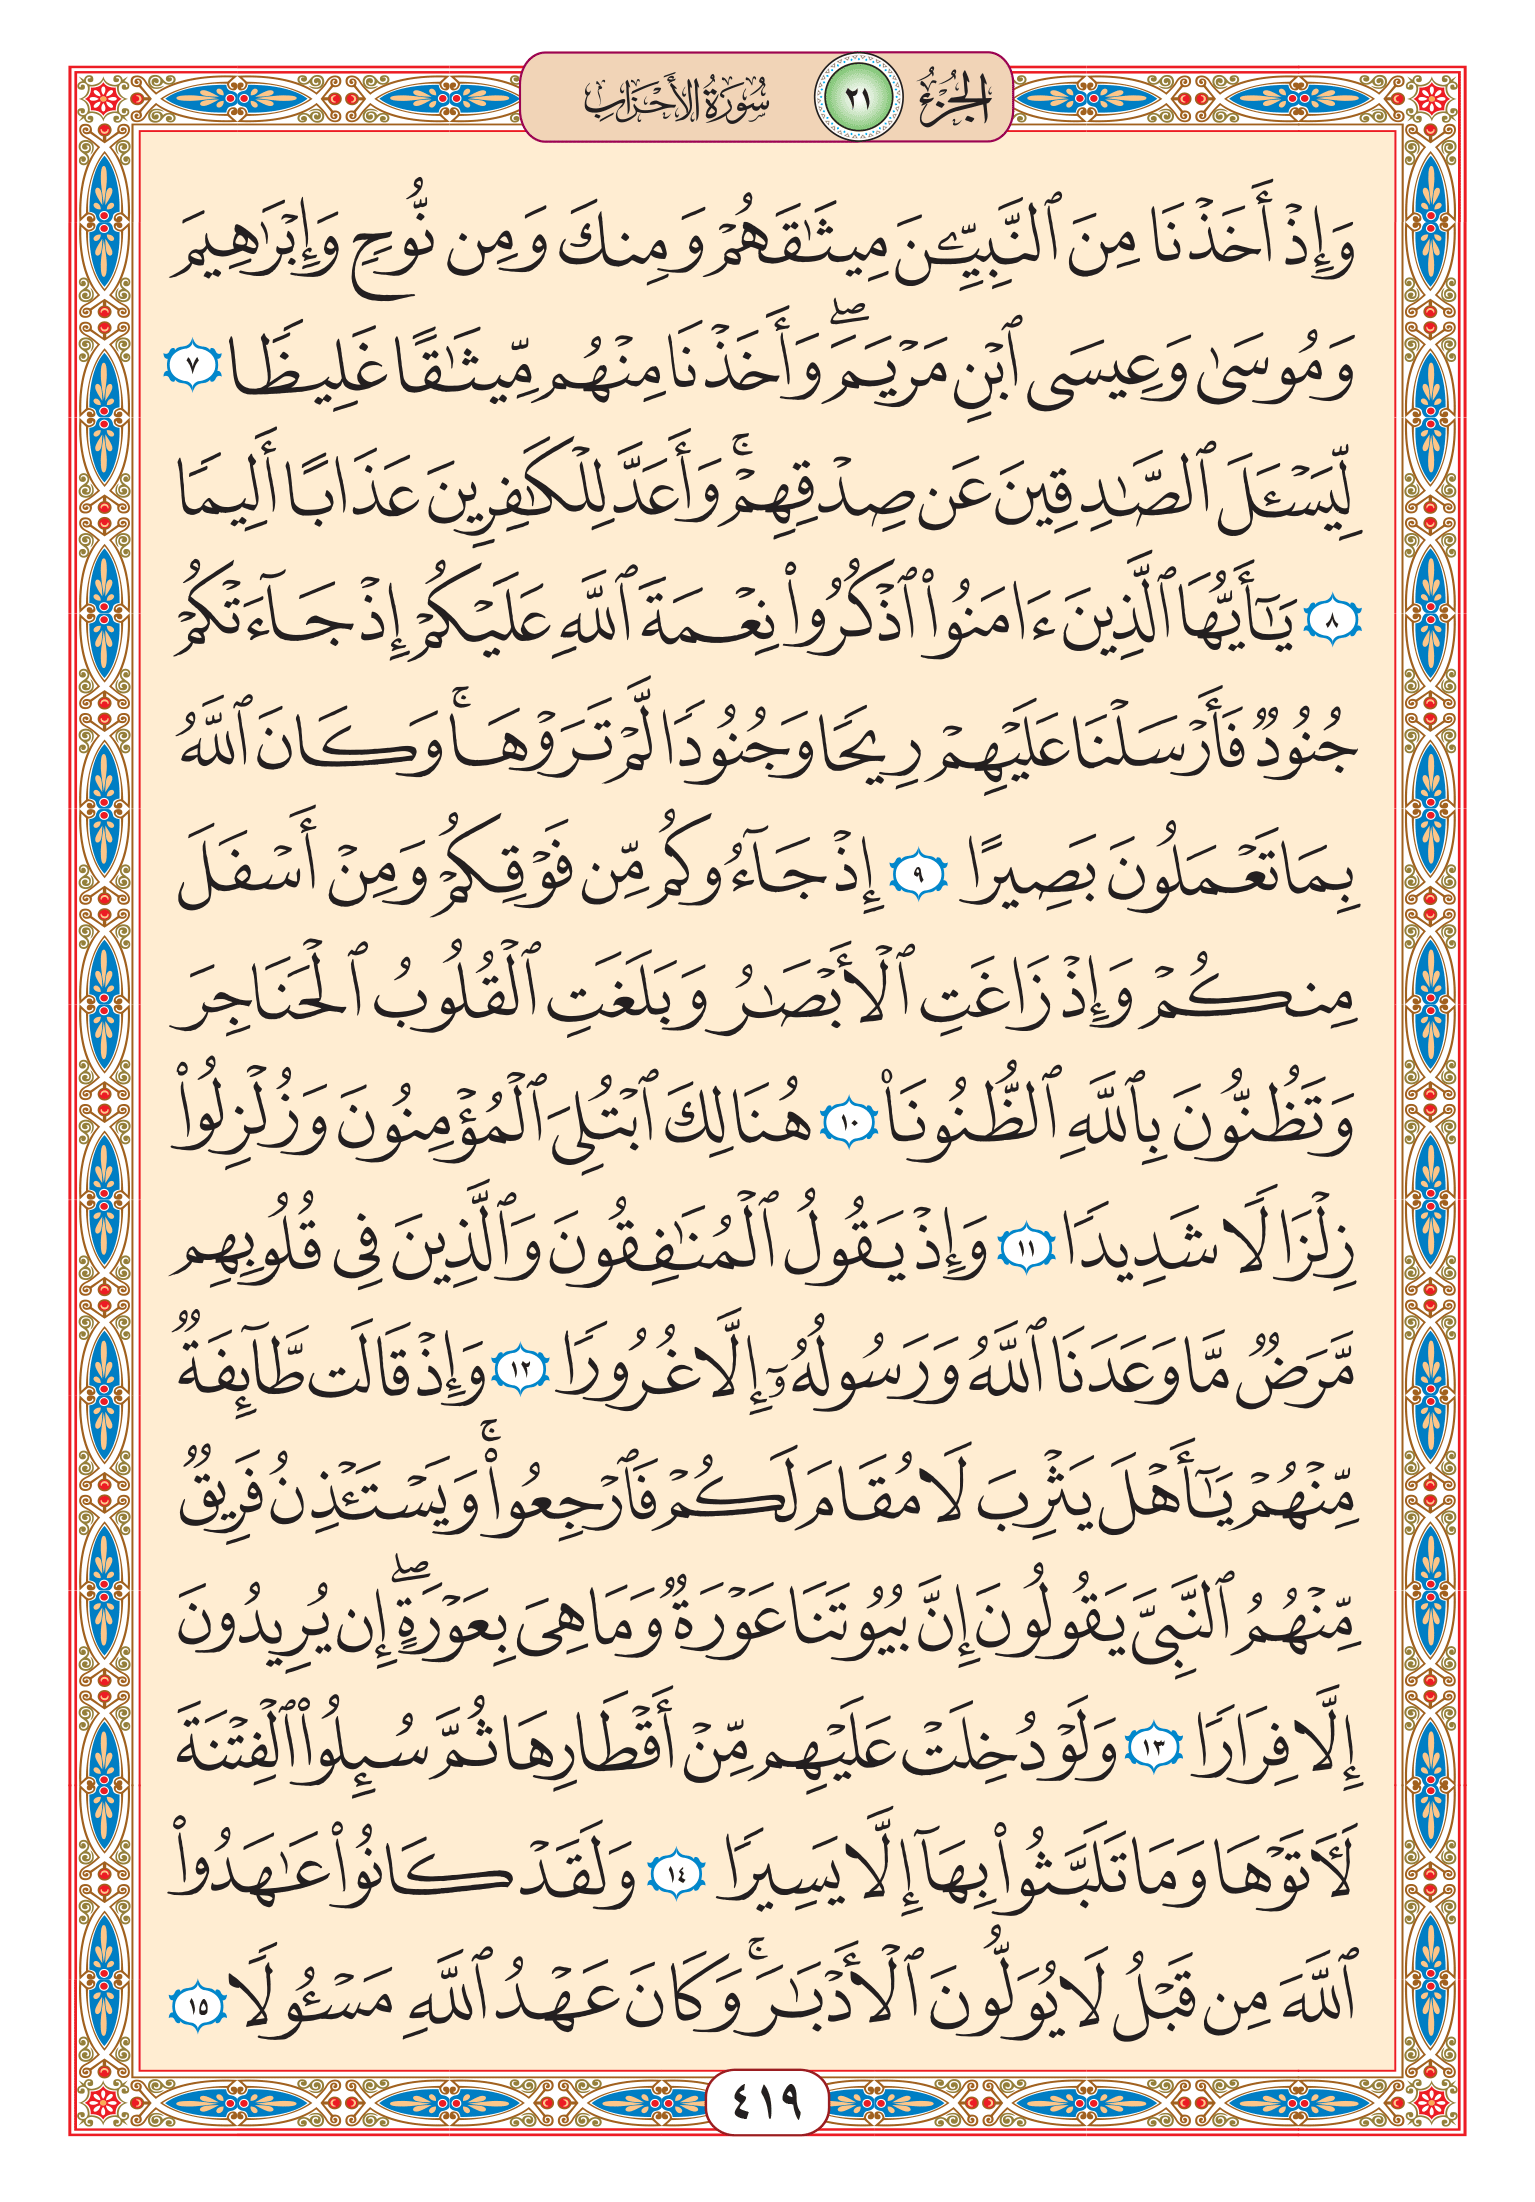 الجزء ٢١ سورة الأحزاب
وَإِذْ أَخَذْنَا مِنَ ٱلنَّبِيِّـۧنَ مِيثَٰقَهُمْ وَمِنكَ وَمِن نُّوحٍ وَإِبْرَٰهِيمَ
وَمُوسَىٰ وَعِيسَى ٱبْنِ مَرْيَمَۖ وَأَخَذْنَا مِنْهُم مِّيثَٰقًا غَلِيظًا ٧
لِّيَسْـَٔلَ ٱلصَّٰدِقِينَ عَن صِدْقِهِمْۚ وَأَعَدَّ لِلْكَٰفِرِينَ عَذَابًا أَلِيمًا
٨ يَٰٓأَيُّهَا ٱلَّذِينَ ءَامَنُوا۟ ٱذْكُرُوا۟ نِعْمَةَ ٱللَّهِ عَلَيْكُمْ إِذْ جَآءَتْكُمْ
جُنُودٌ فَأَرْسَلْنَا عَلَيْهِمْ رِيحًا وَجُنُودًا لَّمْ تَرَوْهَاۚ وَكَانَ ٱللَّهُ
بِمَا تَعْمَلُونَ بَصِيرًا ٩ إِذْ جَآءُوكُم مِّن فَوْقِكُمْ وَمِنْ أَسْفَلَ
مِنكُمْ وَإِذْ زَاغَتِ ٱلْأَبْصَٰرُ وَبَلَغَتِ ٱلْقُلُوبُ ٱلْحَنَاجِرَ
وَتَظُنُّونَ بِٱللَّهِ ٱلظُّنُونَا۠ ١٠ هُنَالِكَ ٱبْتُلِىَ ٱلْمُؤْمِنُونَ وَزُلْزِلُوا۟
زِلْزَالًا شَدِيدًا ١١ وَإِذْ يَقُولُ ٱلْمُنَٰفِقُونَ وَٱلَّذِينَ فِى قُلُوبِهِم
مَّرَضٌ مَّا وَعَدَنَا ٱللَّهُ وَرَسُولُهُۥٓ إِلَّا غُرُورًا ١٢ وَإِذْ قَالَت طَّآئِفَةٌ
مِّنْهُمْ يَٰٓأَهْلَ يَثْرِبَ لَا مُقَامَ لَكُمْ فَٱرْجِعُوا۟ۚ وَيَسْتَـْٔذِنُ فَرِيقٌ
مِّنْهُمُ ٱلنَّبِىَّ يَقُولُونَ إِنَّ بُيُوتَنَا عَوْرَةٌ وَمَا هِىَ بِعَوْرَةٍۖ إِن يُرِيدُونَ
إِلَّا فِرَارًا ١٣ وَلَوْ دُخِلَتْ عَلَيْهِم مِّنْ أَقْطَارِهَا ثُمَّ سُئِلُوا۟ ٱلْفِتْنَةَ
لَـَٔاتَوْهَا وَمَا تَلَبَّثُوا۟ بِهَآ إِلَّا يَسِيرًا ١٤ وَلَقَدْ كَانُوا۟ عَٰهَدُوا۟
ٱللَّهَ مِن قَبْلُ لَا يُوَلُّونَ ٱلْأَدْبَٰرَۚ وَكَانَ عَهْدُ ٱللَّهِ مَسْـُٔولًا ١٥
٤١٩